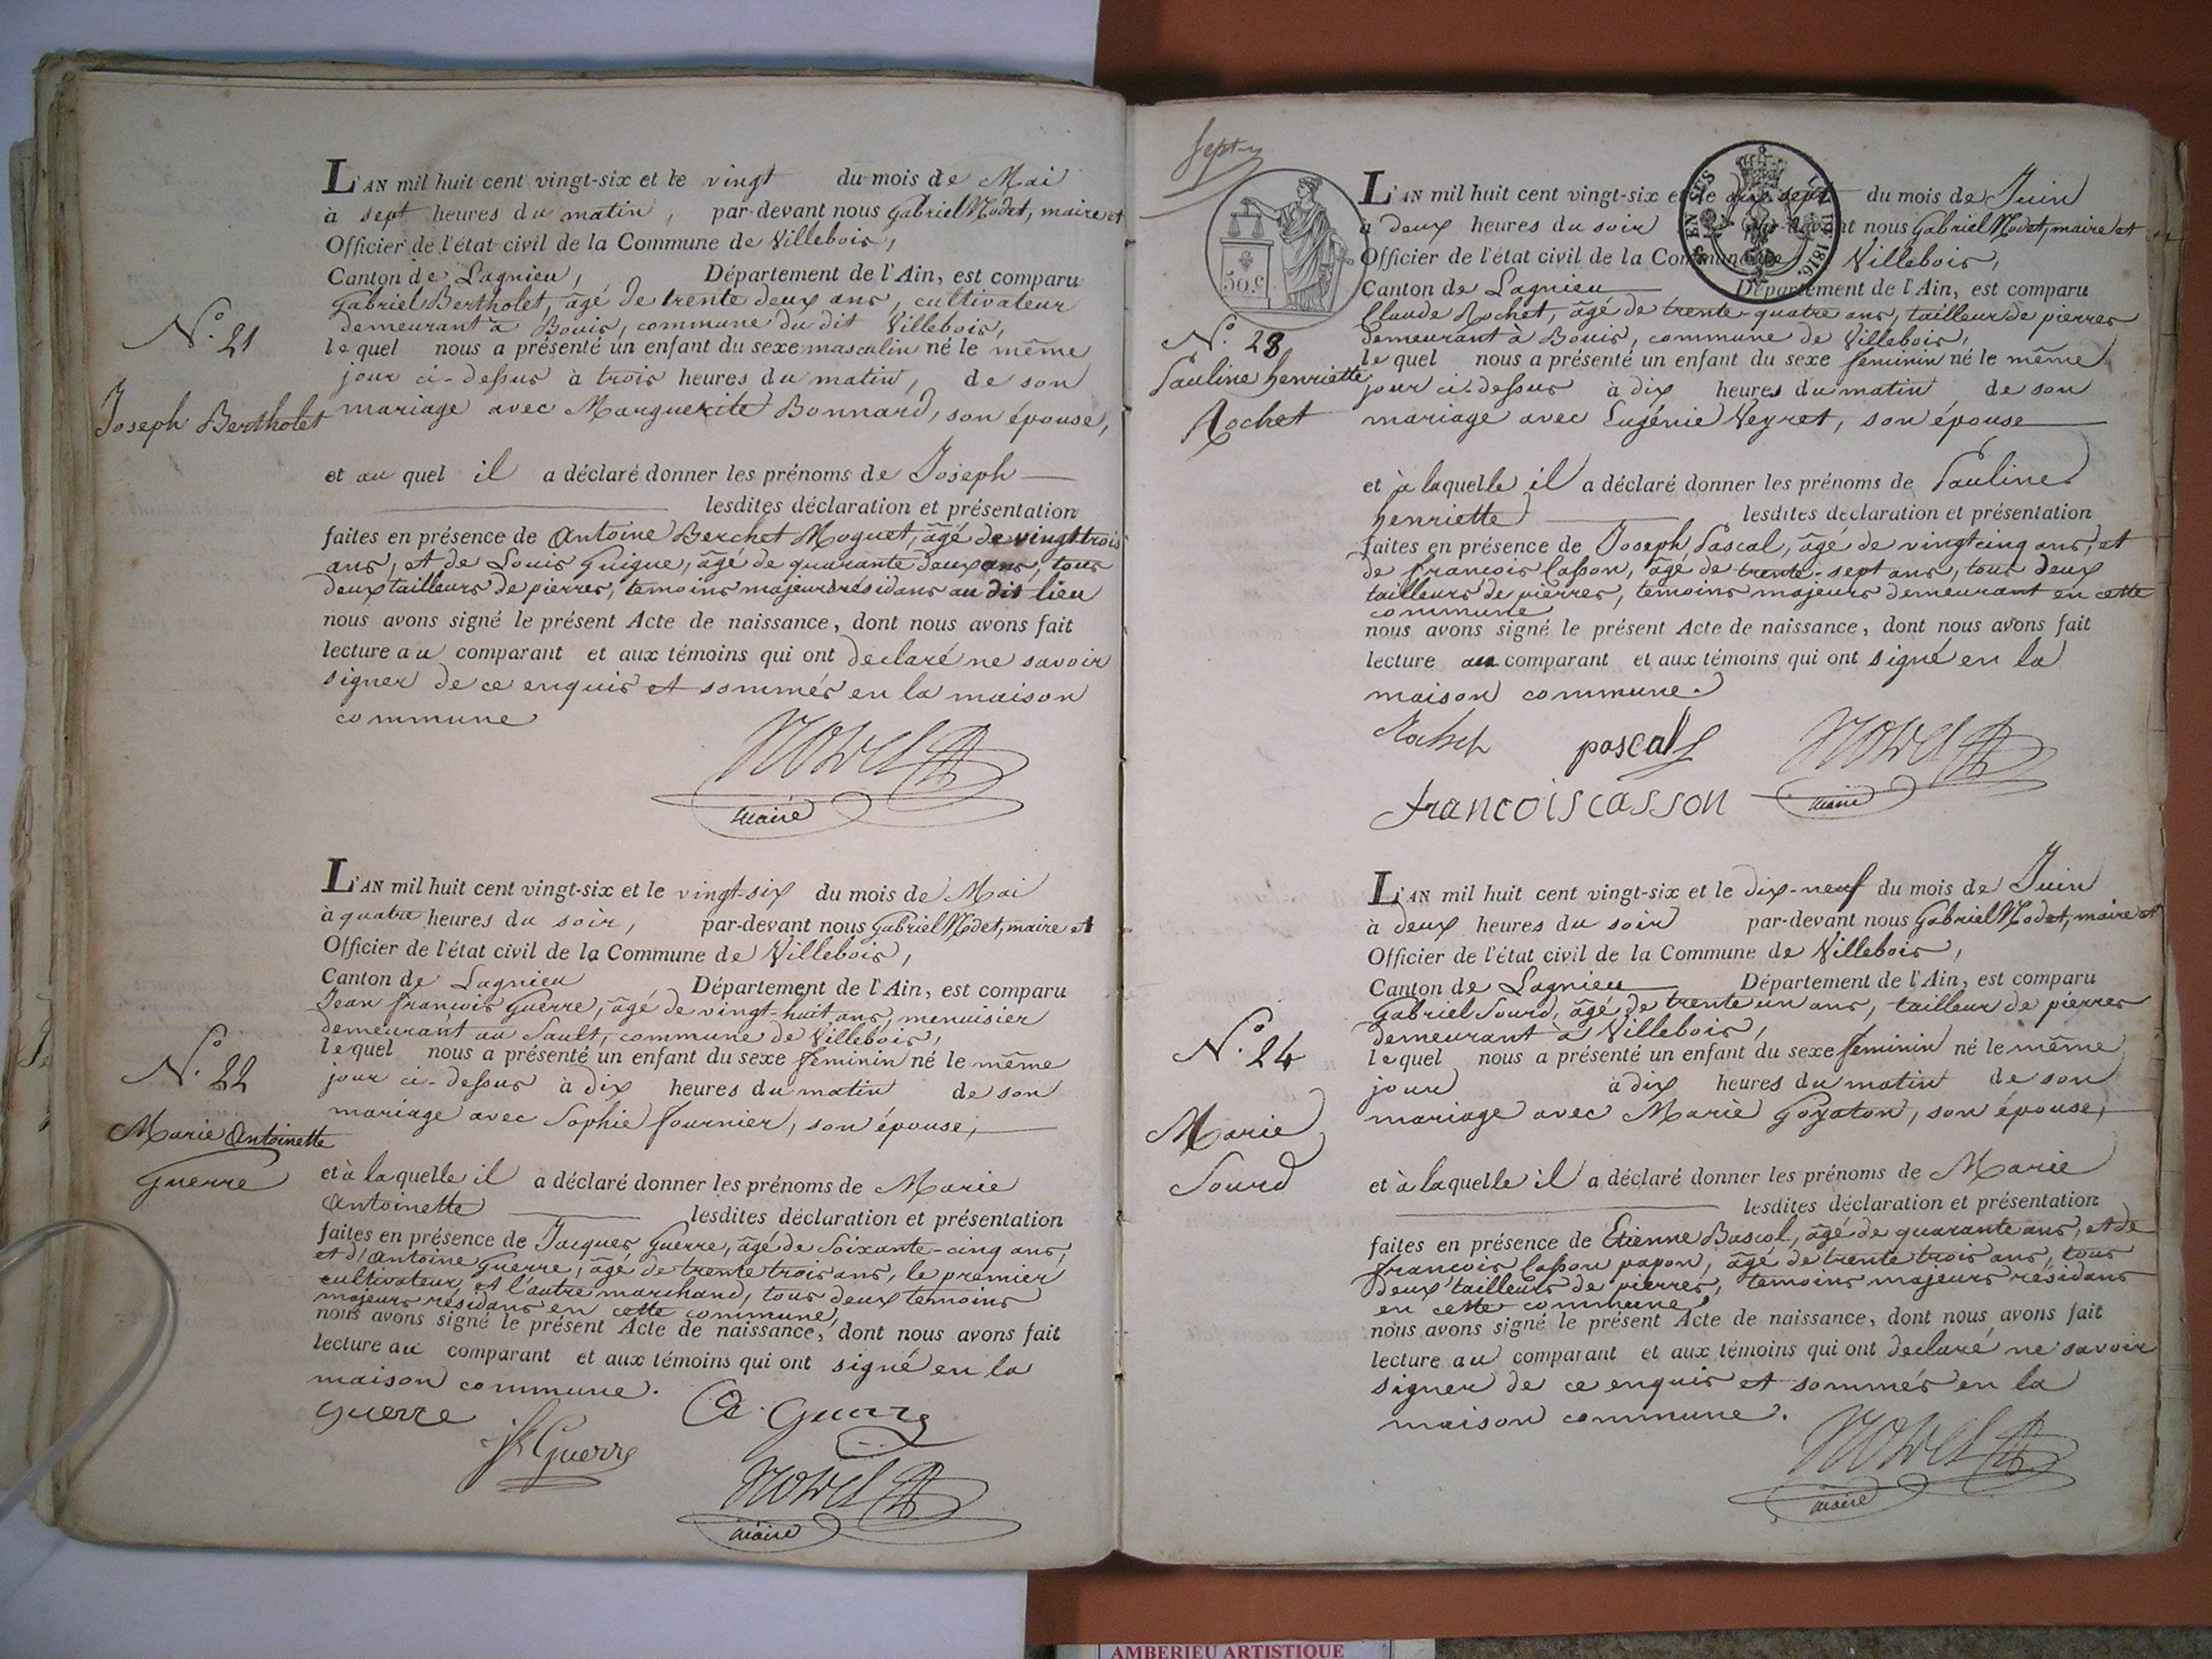 L'AN mil huit cent vingt-six et le vingt du mois de Mai
à sept heures du matin, par-devant nous Gabriel Modet, maire et
Officier de l'état civil de la Commune de Villebois,
Canton de Lagnieu, Département de l'Ain, est comparu
Gabriel Bertholet, âgé de trente deux ans, cultivateur
demeurant à Bouis, commune du dit Villebois,
N.o 21
lequel nous a présenté un enfant du sexe masculin né le même
jour ci-dessus à trois heures du matin, de son
Joseph Bertholet
mariage avec Marguerite Bonnard, son épouse,
et au quel il a déclaré donner les prénoms de Joseph
lesdites déclaration et présentation
faites en présence de Antoine Berchet Moguet, âgé de vingt trois
ans, et de Louis Guigue, âgé de quarante deux ans, tous
deux tailleurs de pierres, temoins majeurs résidans au dit lieu
nous avons signé le présent Acte de naissance, dont nous avons fait
lecture au comparant et aux témoins qui ont declaré ne savoir
signer de ce enquis et sommés en la maison
commune
Modet
maire
L'AN mil huit cent vingt-six et le vingt-six du mois de Mai
à quatre heures du soir, par-devant nous Gabriel Modet, maire et
Officier de l'état civil de la Commune de Villebois,
Canton de Lagnieu Département de l'Ain, est comparu
Jean françois Guerre, âgé de vingt-huit ans, menuisier
demeurant au Sault, commune de Villebois,
N.o 22
lequel nous a présenté un enfant du sexe feminin né le même
jour ci-dessus à dix heures du matin de son
mariage avec Sophie fournier, son épouse,
Marie Antoinette
Guerre
et à laquelle il a déclaré donner les prénoms de Marie
Antoinette lesdites déclaration et présentation
faites en présence de Jacques Guerre, âgé de soixante-cinq ans,
et d'Antoine Guerre, âgé de trente trois ans, le premier
cultivateur, et l'autre marchand, tous deux temoins
majeurs résidans en cette commune,
nous avons signé le présent Acte de naissance, dont nous avons fait
lecture au comparant et aux témoins qui ont signé en la
maison commune.
guerre
Guerre
Modet
maire
sept
50. c
1816.
L'AN mil huit cent vingt-six et le dix sept du mois de Juin
à deux heures du soir par-devant nous Gabriel Modet, maire et
Officier de l'état civil de la Commune de Villebois,
Canton de Lagnieu Département de l'Ain, est comparu
Claude Rochet, âgé de trente-quatre ans, tailleur de pierres
demeurant à Bouis, commune de Villebois,
N.o 23
lequel nous a présenté un enfant du sexe feminin né le même
Pauline henriette
Rochet
jour ci-dessus à dix heures du matin de son
mariage avec Eugénie Veyret, son épouse
et à laquelle il a déclaré donner les prénoms de Pauline
henriette lesdites déclaration et présentation
faites en présence de Joseph Pascal, âgé de vingt cinq ans, et
de françois Casson, âgé de trente-sept ans, tous deux
tailleurs de pierres, temoins majeurs demeurant en cette
commune
nous avons signé le présent Acte de naissance, dont nous avons fait
lecture au comparant et aux témoins qui ont signé en la
maison commune.
Rochet pascal Modet
francois casson maire
L'AN mil huit cent vingt-six et le dix-neuf du mois de Juin
à deux heures du soir par-devant nous Gabriel Modet, maire et
Officier de l'état civil de la Commune de Villebois,
Canton de Lagnieu Département de l'Ain, est comparu
Gabriel Sourd, âgé de trente un ans, tailleur de pierres
demeurant à Villebois,
N.o 24
lequel nous a présenté un enfant du sexe feminin né le même
jour à dix heures du matin de son
mariage avec Marie Goyaton, son épouse,
Marie
Sourd
et à laquelle il a déclaré donner les prénoms de Marie
lesdites déclaration et présentation
faites en présence de Etienne Bascol, âgé de quarante ans, et de
françois Casson papon, âgé de trente trois ans, tous
deux tailleurs de pierres, temoins majeurs résidans
en cette commune,
nous avons signé le présent Acte de naissance, dont nous avons fait
lecture au comparant et aux témoins qui ont declaré ne savoir
signer de ce enquis et sommés en la
maison commune.
Modet
maire
AMBERIEU ARTISTIQUE